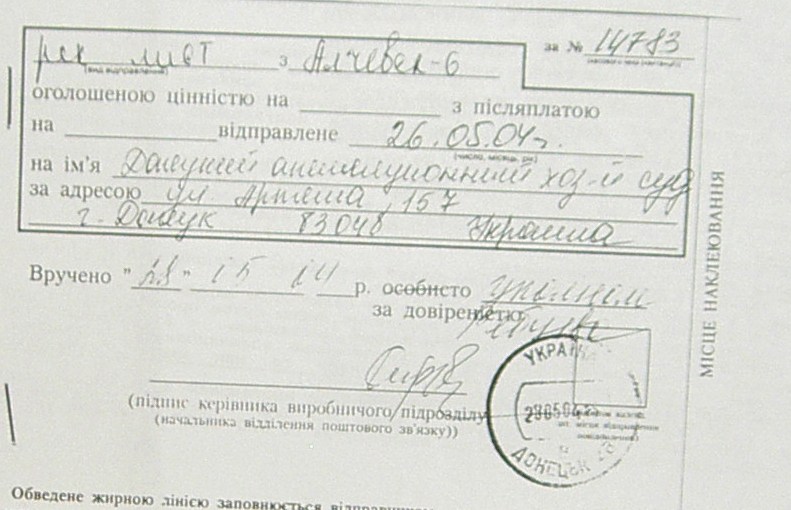 за № 14783
рек лист з Алчевск-6
(вид відправлення)
оголошеною цінністю на ____ з післяплатою
на ____ відправлене 26.05.04г.
(число, місяць, рік)
на ім'я Донецкий апелляционный хоз-й суд
за адресою ул. Артема, 157
г. Донецк 83048 Украина
Вручено "28" 05 04 р. особисто
за довіреністю
(підпис керівника виробничого підрозділу
(начальника відділення поштового зв'язку))
УКРАЇНА
280504
ДОНЕЦЬК
МІСЦЕ НАКЛЕЮВАННЯ
Обведене жирною лінією заповнюється